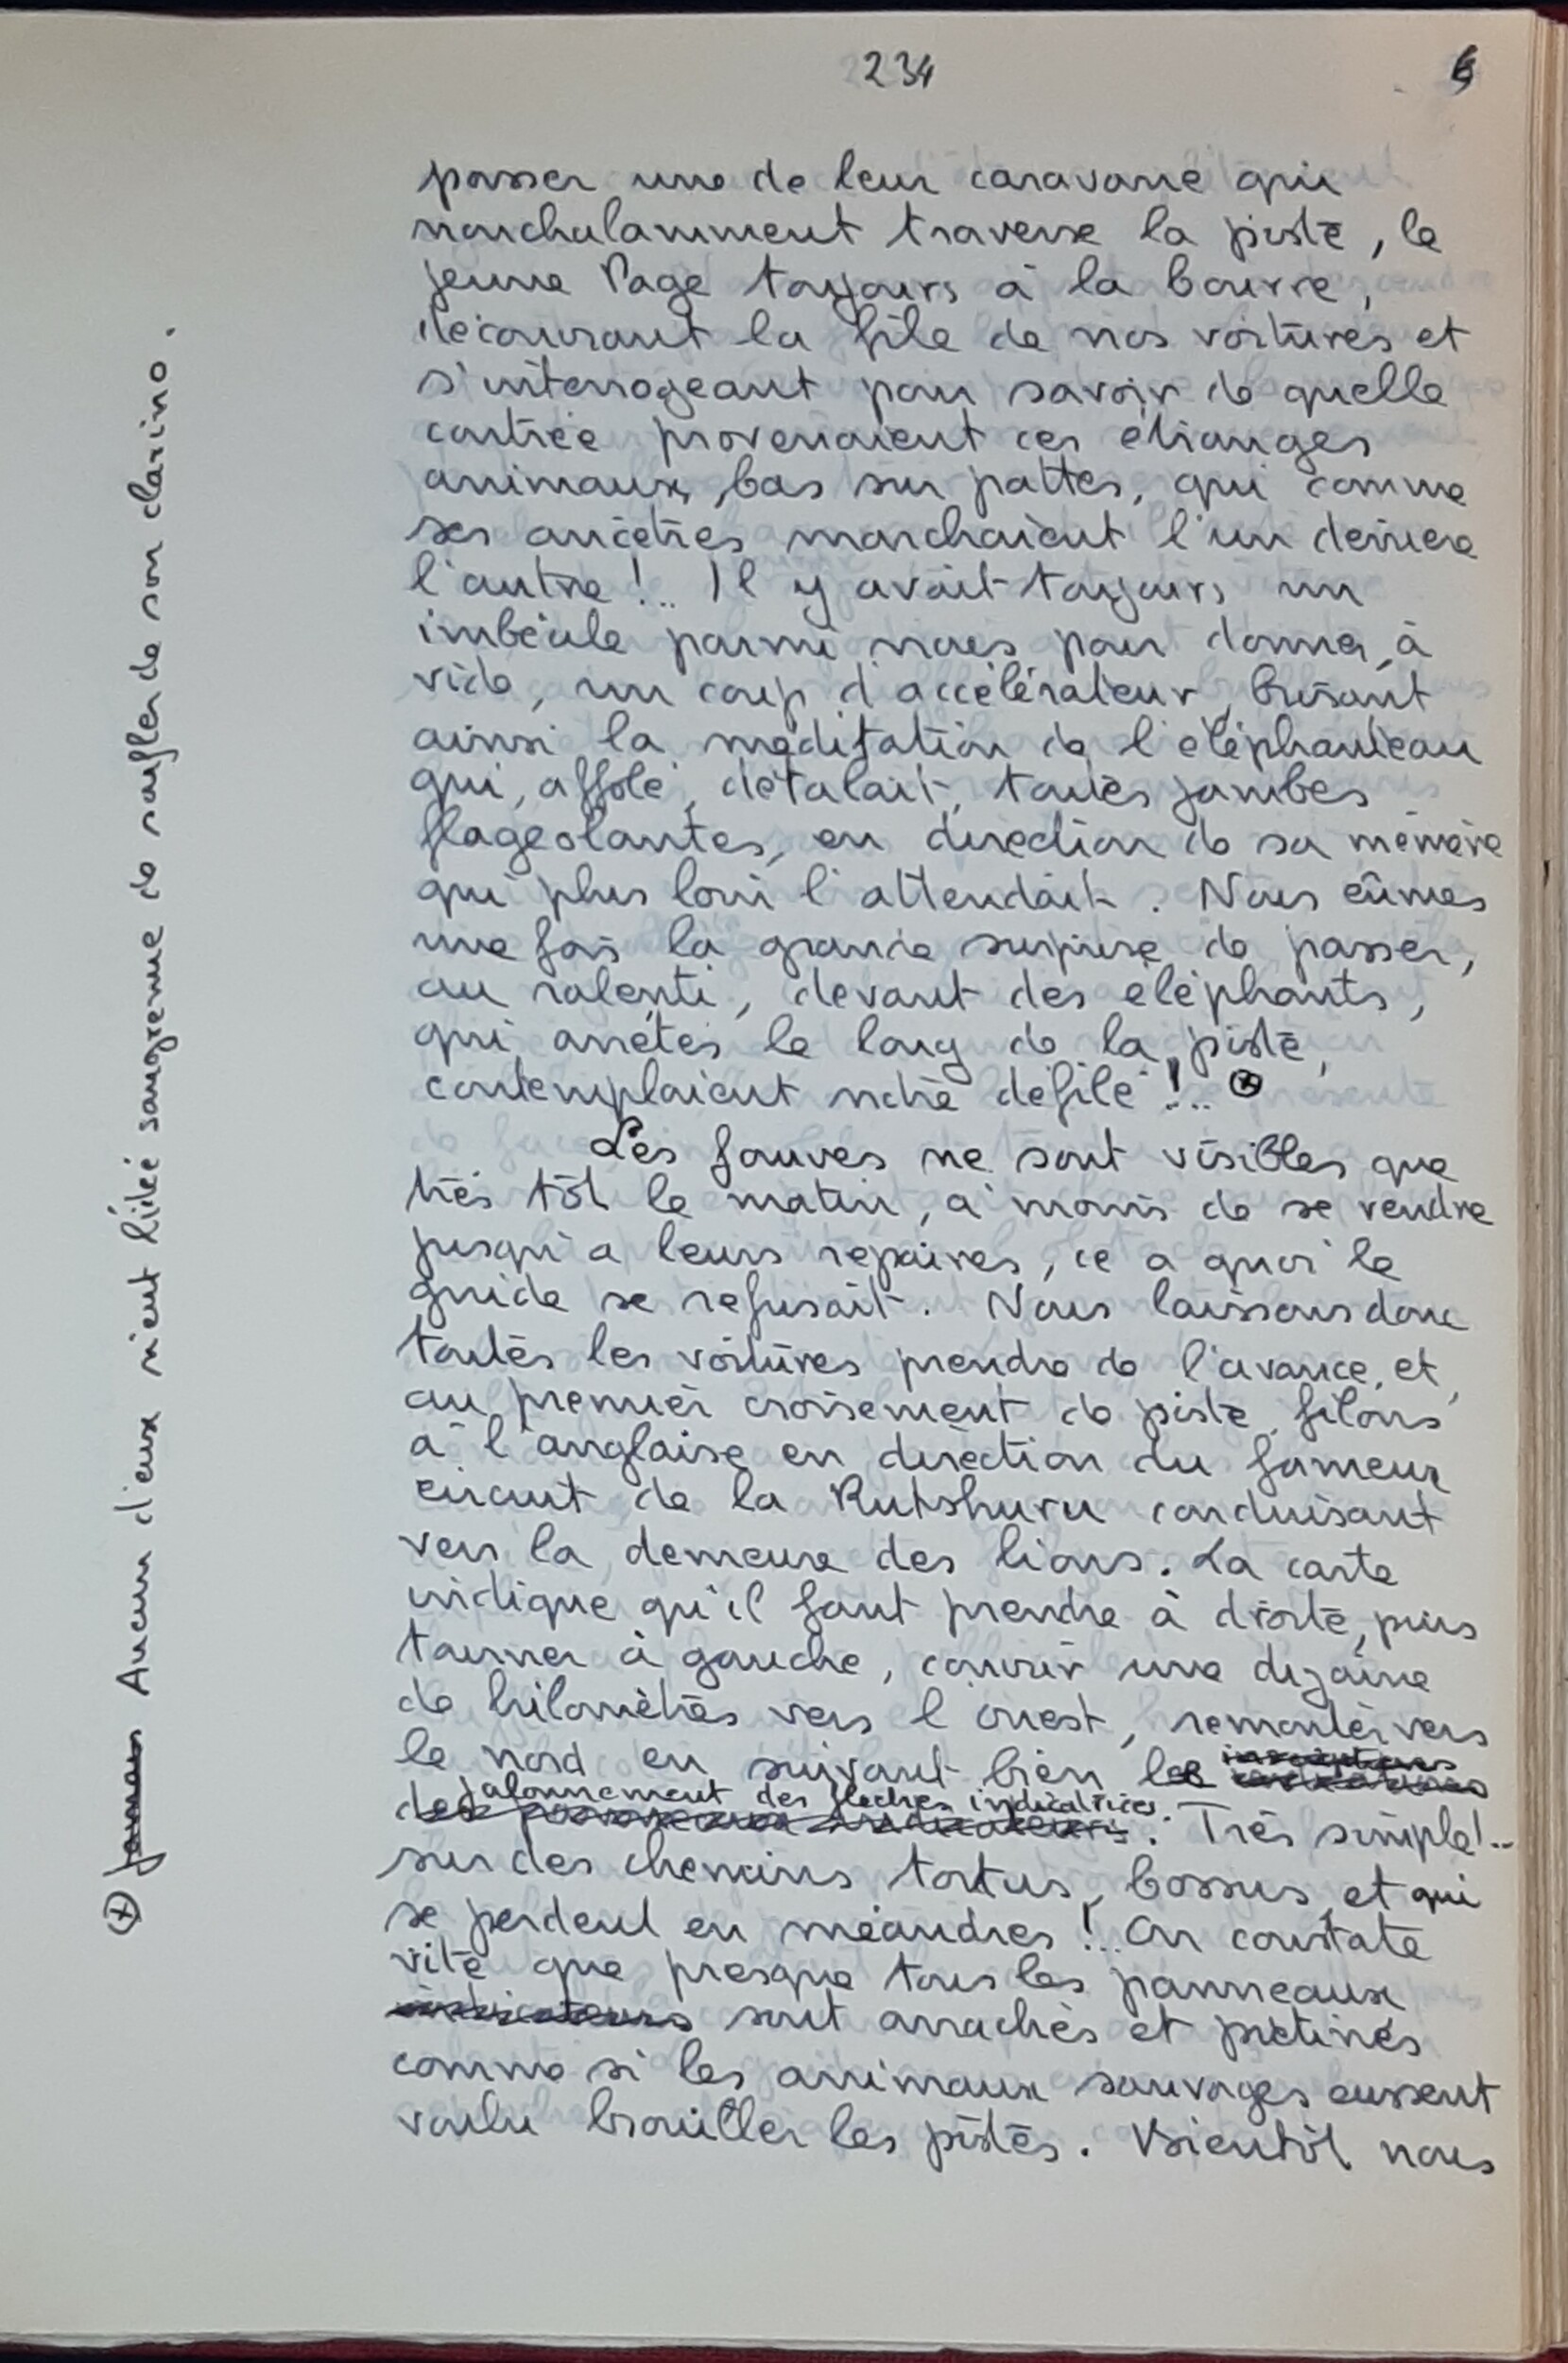 234
passer une de leur caravane qui
nonchalamment traverse la piste, le
jeune Page toujours à la bourre,
découvrant la file de nos voitures et
s'interrogeant pour savoir de quelle
contrée provenaient ces étranges
animaux, bas sur pattes, qui comme
ses ancêtres marchaient l'un derrière
l'autre !.. Il y avait toujours un
imbécile parmi nous pour donner, à
vide, un coup d'accélérateur, brisant
ainsi la méditation de l'éléphanteau
qui, affolé, détalait, toutes jambes
flageolantes, en direction de sa mémère
qui plus loin l'attendait. Nous eûmes
une fois la grande surprise de passer,
au ralenti, devant des éléphants,
qui arrêtés le long de la piste,
contemplaient notre défilé !.. ⊕
Les fauves ne sont visibles que
très tôt le matin, à moins de se rendre
jusqu'à leurs repaires, ce à quoi le
guide se refusait. Nous laissons donc
toutes les voitures prendre de l'avance, et,
au premier croisement de piste, filons
à l'anglaise en direction du fameux
circuit de la Rutshuru conduisant
vers la demeure des lions. La carte
indique qu'il faut prendre à droite, puis
tourner à gauche, couvrir une dizaine
de kilomètres vers l'ouest, remonter vers
le nord en suivant bien le
jalonnement des flèches indicatrices. Très simple !..
sur des chemins tortus, bossus, et qui
se perdent en méandres !.. On constate
vite que presque tous les panneaux
indicateurs sont arrachés et piétinés
comme si les animaux sauvages eussent
voulu brouiller les pistes. Bientôt nous
⊕ Jamais Aucun d'eux n'eut l'idée saugrenue de souffler de son clarino.